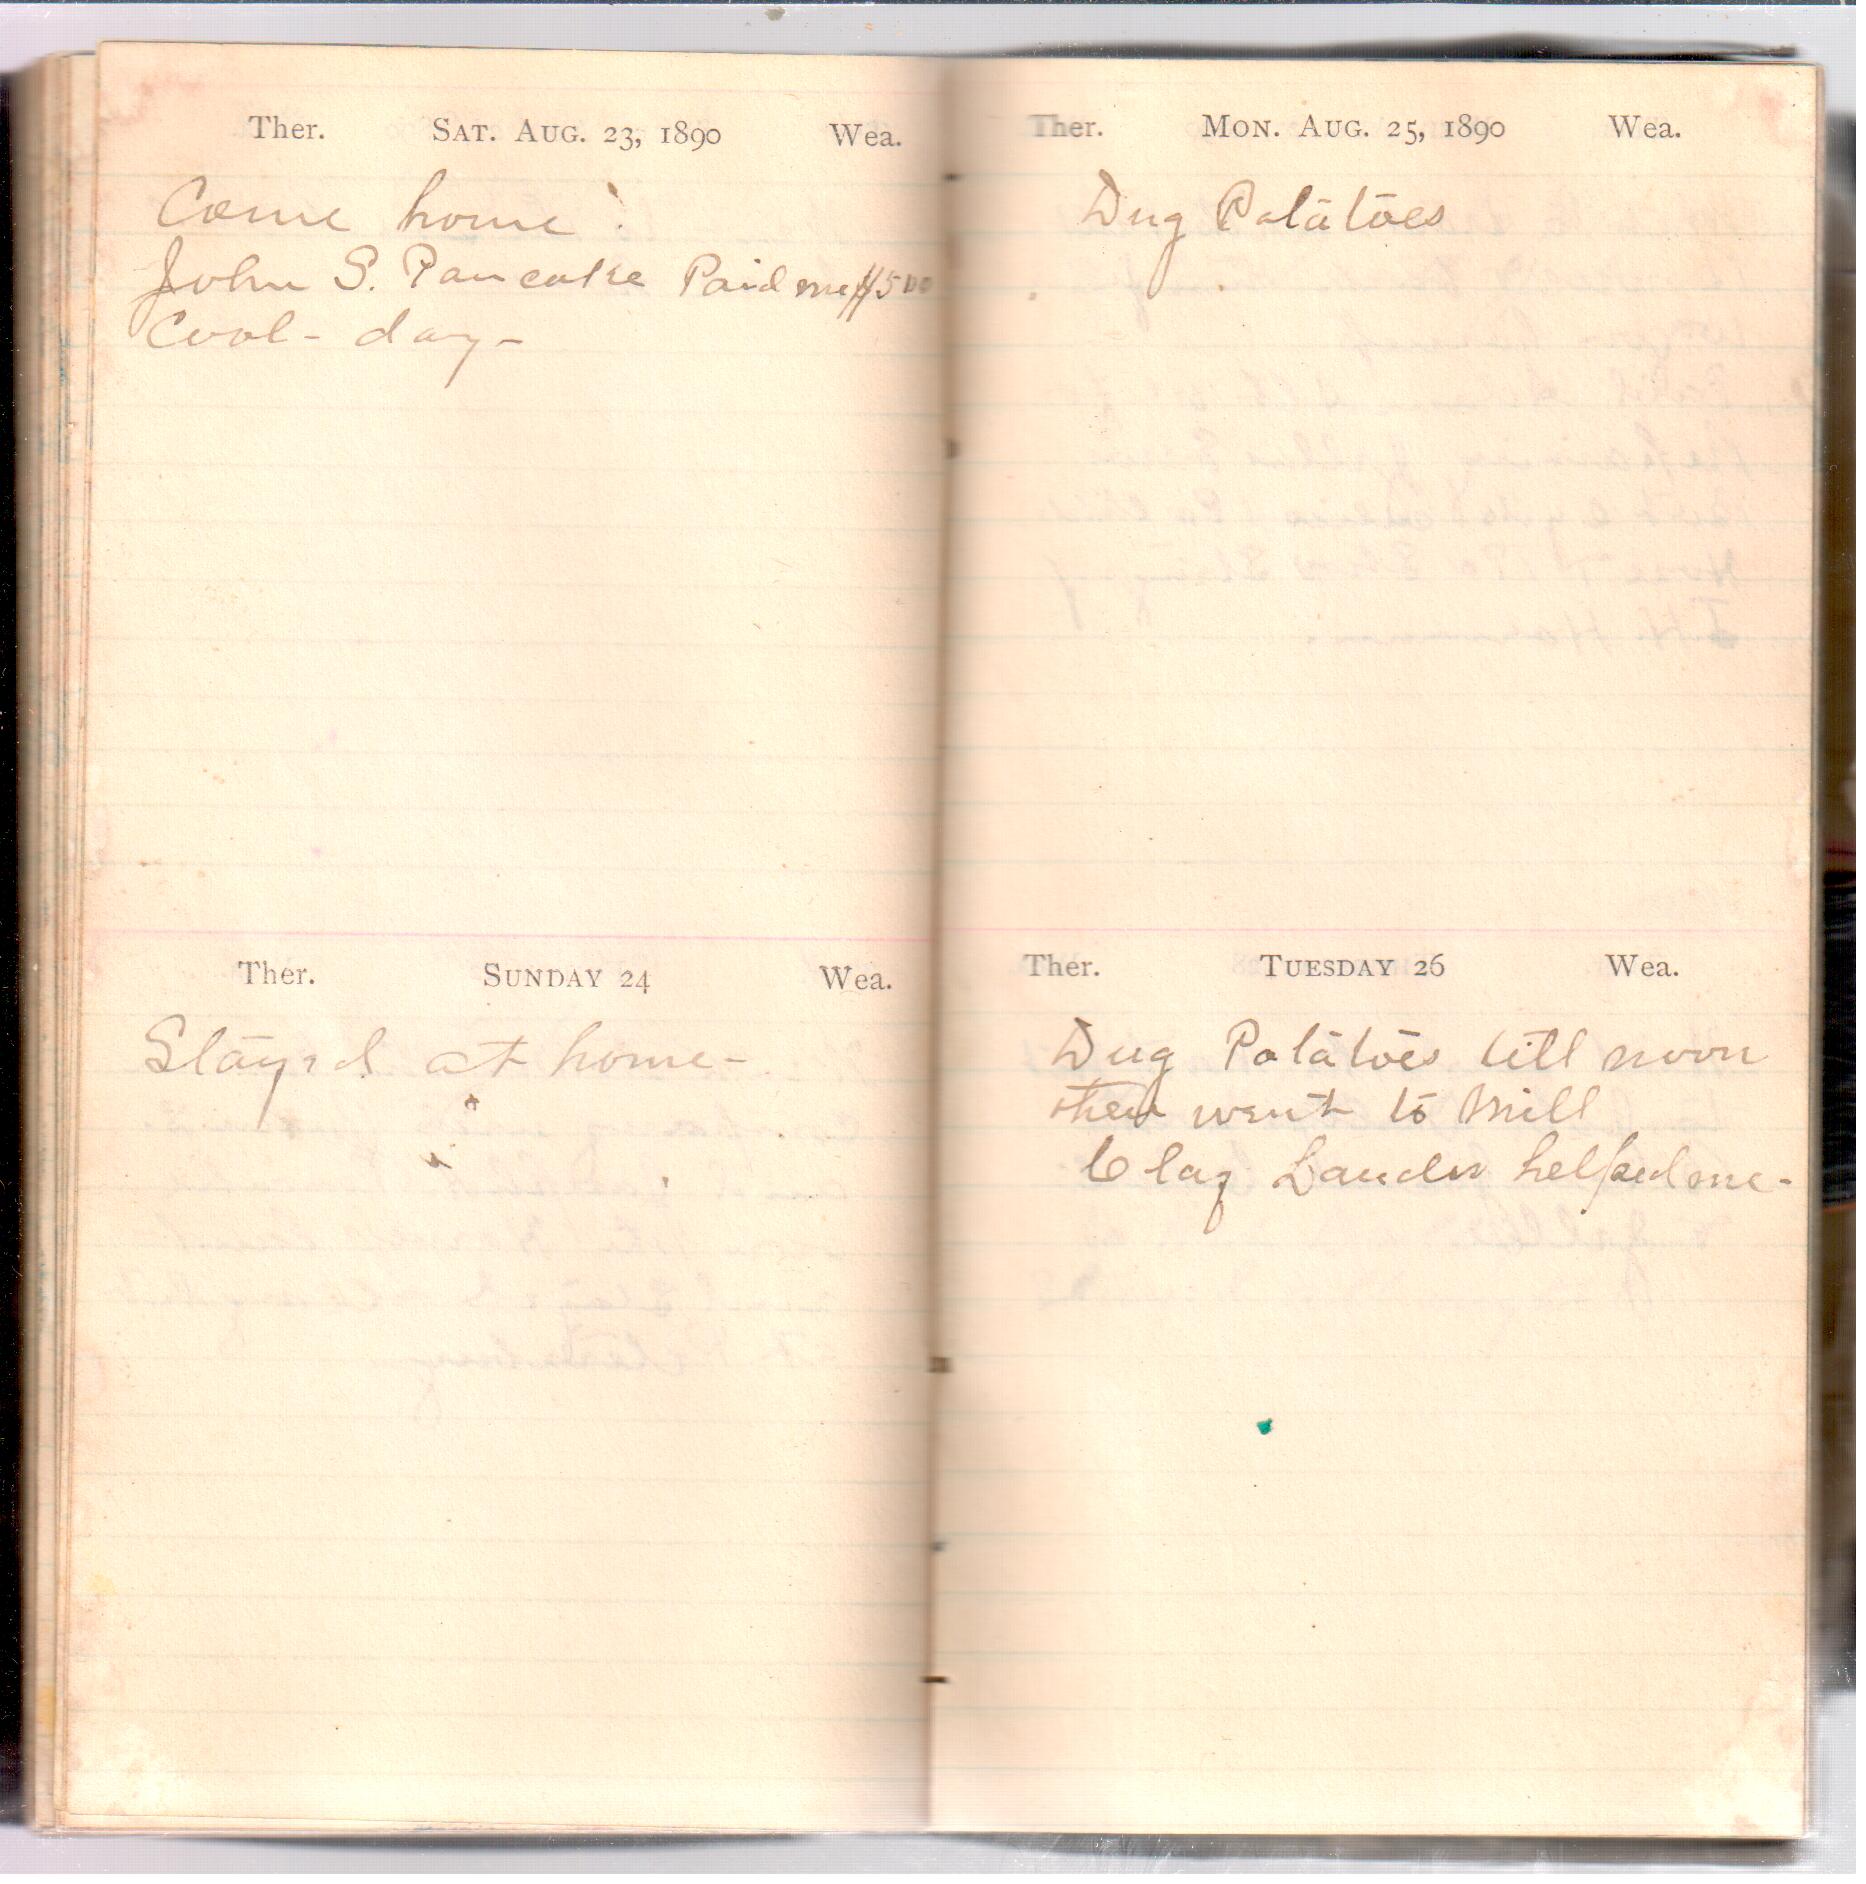 Ther. Sat. Aug. 23, 1890 Wea.
Come home.
John S. Pancake Paid me $5 00
Cool - day -
Ther. Sunday 24 Wea.
Stayed at home -
Ther. Mon. Aug. 25, 1890 Wea.
Dug Potatoes
Ther. Tuesday 26 Wea.
Dug Potatoes till noon
then went to Mill
Clay helped me -